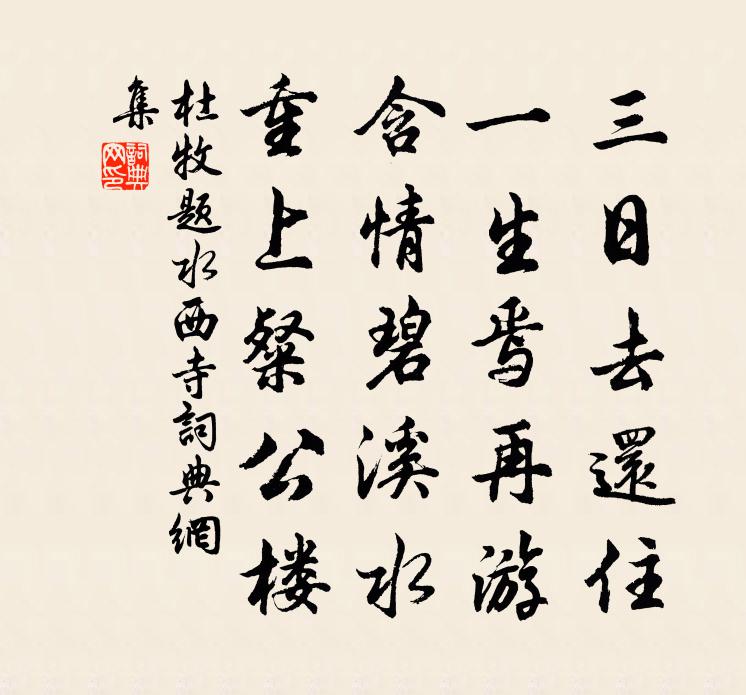 三日去還住
一生焉再游
含情碧溪水
重上粲公楼
杜牧题水西寺詞典網
集
詞典
网印